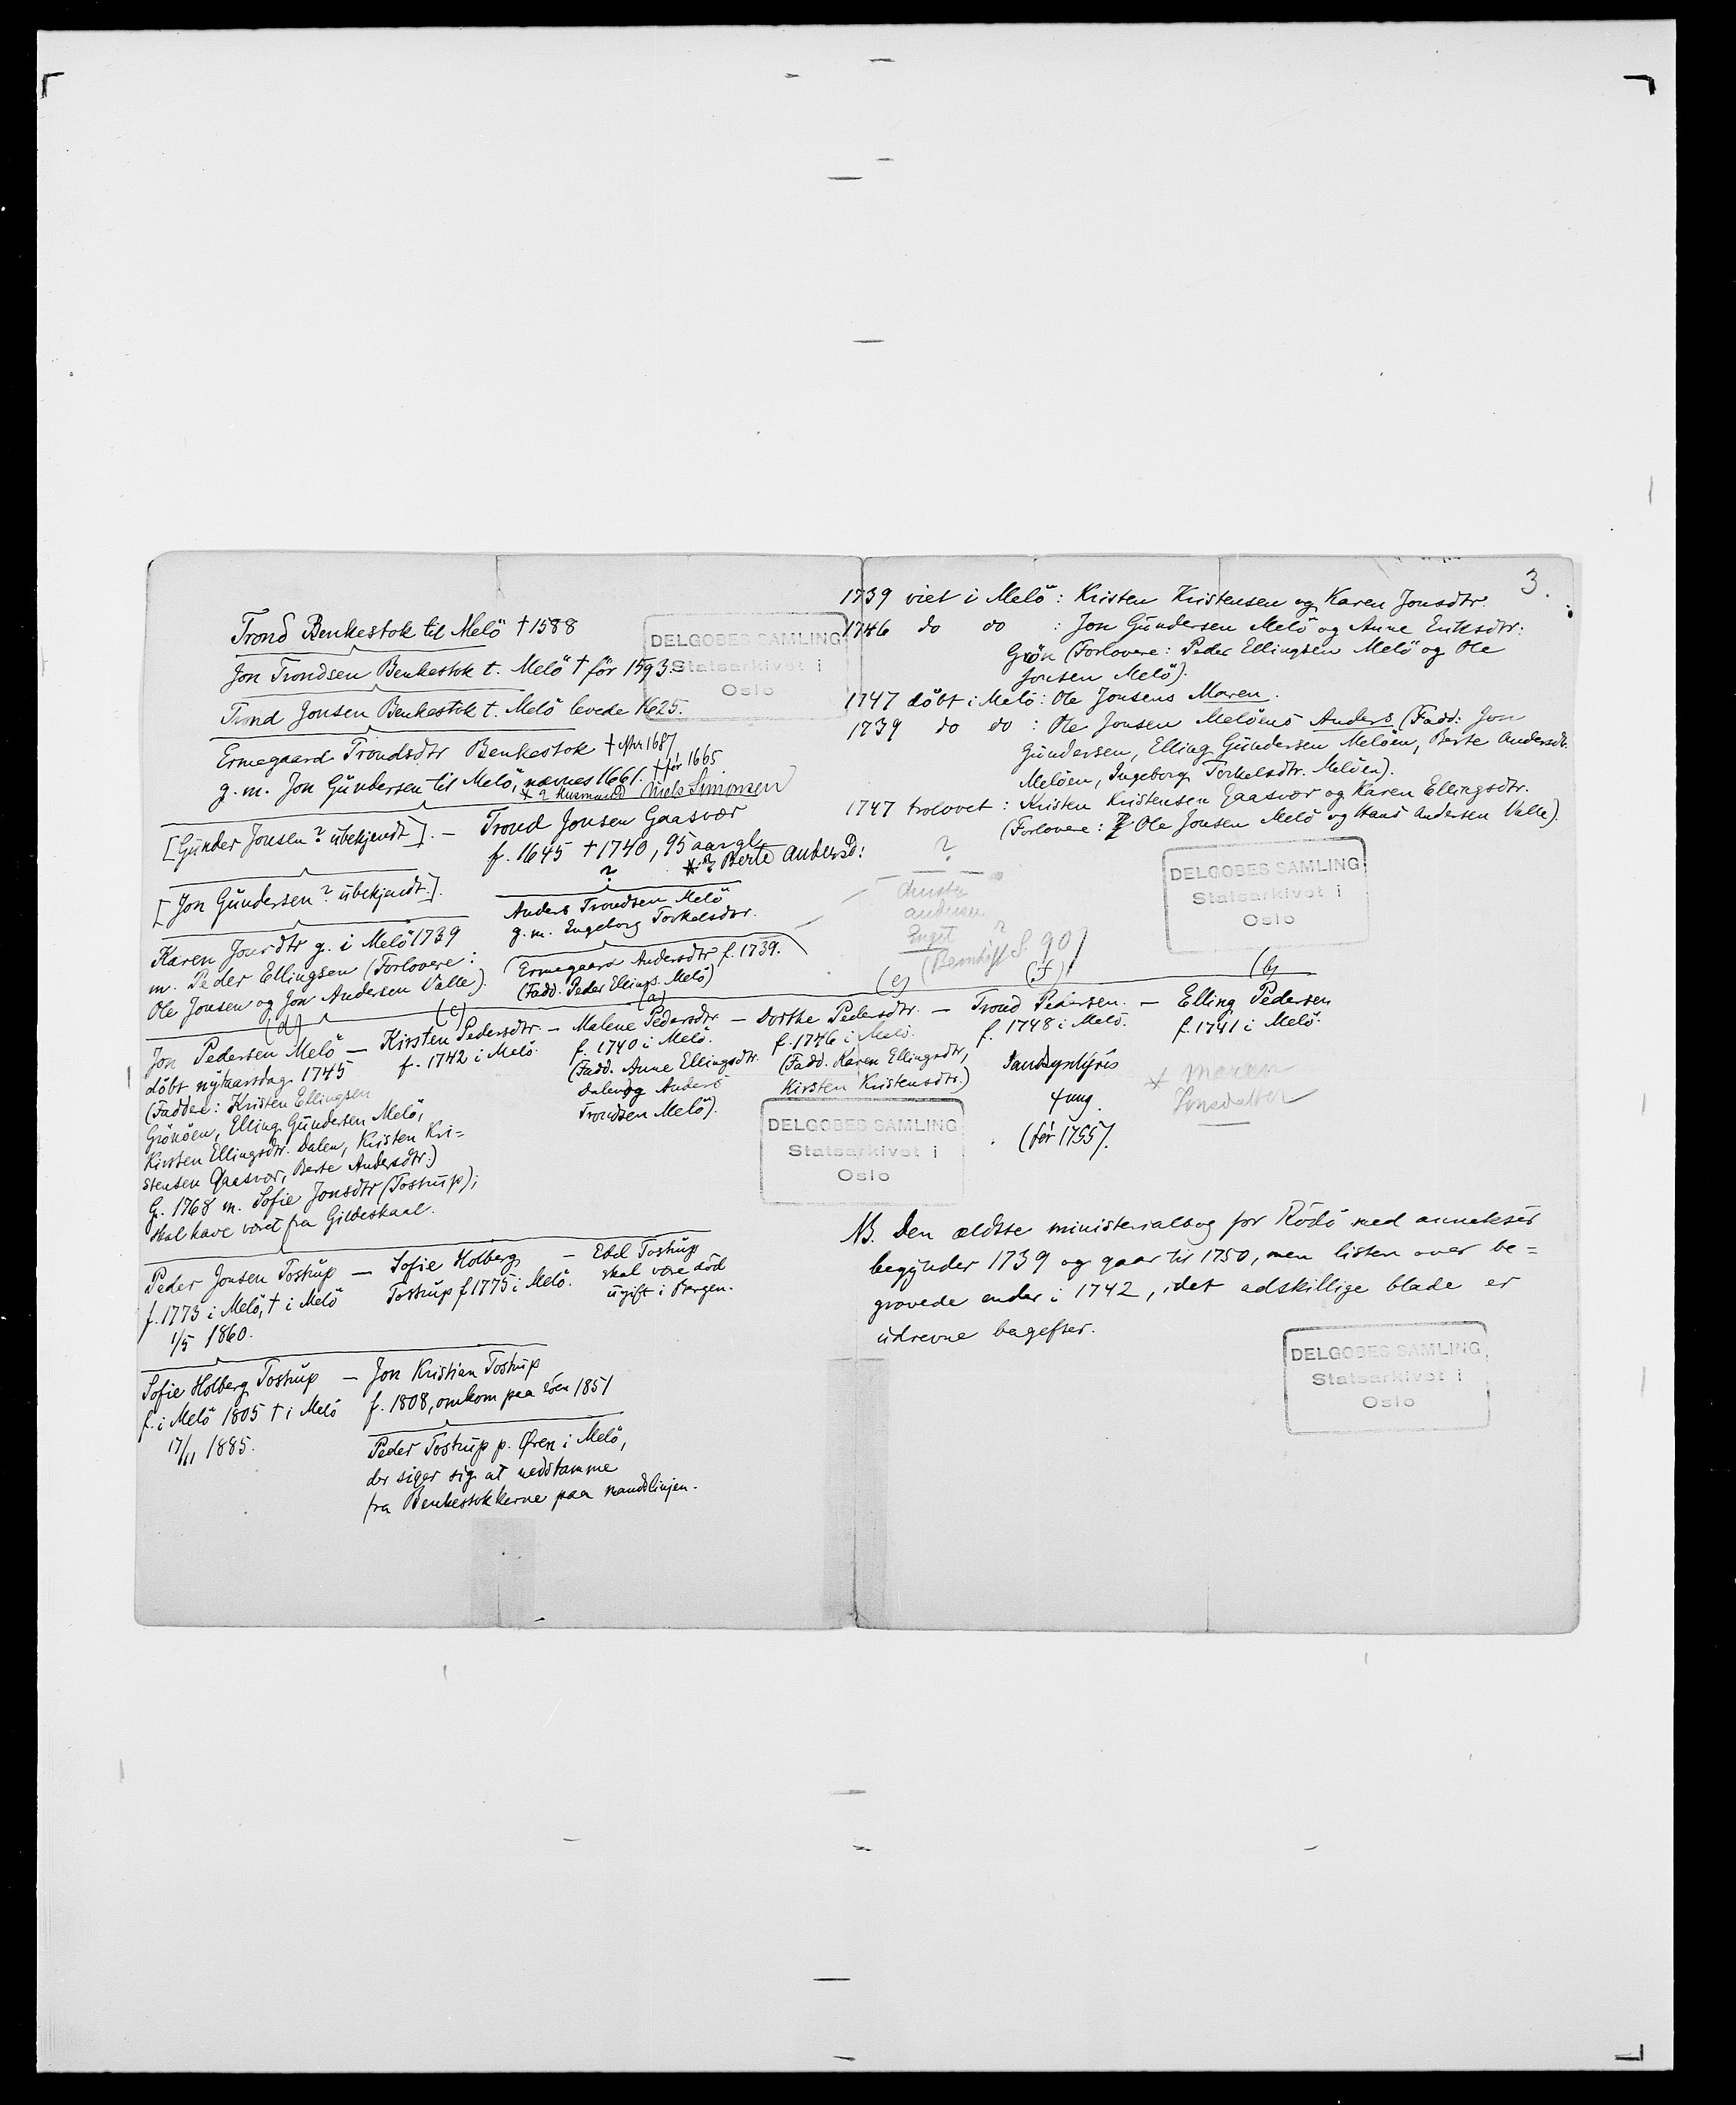 3.
Trond Benkestok til Melö † 1588
Jon Trondsen Benkestok t. Melö † för 1593.
Trond Jonsen Benkestok t. Melö levede 1625.
Ermegaard Trondsdtr Benkestok † efter 1687
g. m. Jon Gündersen til Melö, nævnes 1661. † för 1665
Niels Simonsen
[Günder Jonsen? übekjendt]. — Trond Jonsen Gaasvær
f. 1645 † 1740, 95 aar gl.
? Berte Andersd:
[Jon Gündersen? übekjendt.].
?
Anders Trondsen Melö
g. m. Engeborg Torkelsdtr.
Karen Jonsdtr g. i Melö 1739
m. Peder Ellingsen (Forlovere:
Ole Jonsen og Jon Andersen Valle).
Ermegaard Andersdtr f. 1739.
(Fadd. Peder Ellings. Melö)
(d) (c) (a) (e) (f) (b)
Jon Pedersen Melö — Kirsten Pedersdtr. — Malene Pedersdtr. — Dorthe Pedersdtr. — Trond Pedersen. — Elling Pedersen
döbt nytaarsdag 1745
(Faddere: Kristen Ellingsen
Grönöen, Elling Gündersen Melö,
Kirsten Ellingsdtr. Dalen, Kristen Kri=
stensen Gaasvær, Berte Andersdtr.)
G. 1768 m. Sofie Jonsdtr (Tostrüp);
skal have været fra Gildeskaal.
f. 1742 i Melö.
f. 1740 i Melö.
(Fadd. Anne Ellingsdtr.
Dalen og Anders
Trondsen Melö).
f. 1746 i Melö.
(Fadd. Karen Ellingsdtr,
Kirsten Kristensdtr.)
f. 1748 i Melö.
Sandsynligvis
† ung.
(för 1755).
f. 1741 i Melö.
× Maren
Jonsdatter
Peder Jonsen Tostrüp — Sofie Holberg — Ebel Tostrüp
f. 1773 i Melö, † i Melö
1/5 1860.
Tostrup f 1775 i Melö.
skal være död
ügift i Bergen.
Sofie Holberg Tostrüp — Jon Kristian Tostrüp
f. i Melö 1805 † i Melö
17/11 1885.
f. 1808, omkom paa söen 1851
Peder Tostrüp p. Øren i Melö,
der siger sig at nedstamme
fra Benkestokkerne paa mandslinjen.
1739 viet i Melö: Kristen Kristensen og Karen Jonsdtr.
1746 do do : Jon Gündersen Melö og Anne Eriksdtr:
Grön (Forlovere: Peder Ellingsen Melö og Ole
Jonsen Melö).
1747 döbt i Melö: Ole Jonsens Maren.
1739 do do : Ole Jonsen Melöens Anders (Fadd: Jon
Gündersen, Elling Gündersen Melöen, Berte Andersdtr.
Melöen, Ingeborg Torkelsdtr. Melöen).
1747 trolovet : Kristen Kristensen Gaasvær og Karen Ellingsdtr.
(Forlovere: Ole Jonsen Melö og Hans Andersen Valle).
?
Andersen
S. 90
NB. Den ældste ministerialbog for Rödö med annekser
begynder 1739 og gaar til 1750, men listen over be=
gravede ender i 1742, idet adskillige blade er
üdrevne bagefter.
DELGOBES SAMLING
Statsarkivet i
Oslo
DELGOBES SAMLING
Statsarkivet i
Oslo
DELGOBES SAMLING
Statsarkivet i
Oslo
DELGOBES SAMLING
Statsarkivet i
Oslo